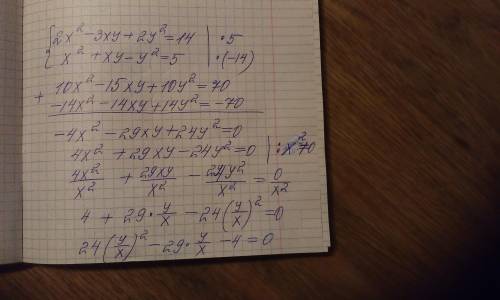 {2x²-3xy+2y²=14 | ·5
x²+xy-y²=5 | ·(-14)
+ 10x²-15xy+10y²=70
-14x²-14xy+14y²=-70
-4x²-29xy+24y²=0
4x²+29xy-24y²=0 | :x²≠0
4x²/x² + 29xy/x² - 24y²/x² = 0/x²
4 + 29·y/x - 24(y/x)²=0
24(y/x)²-29·y/x-4=0